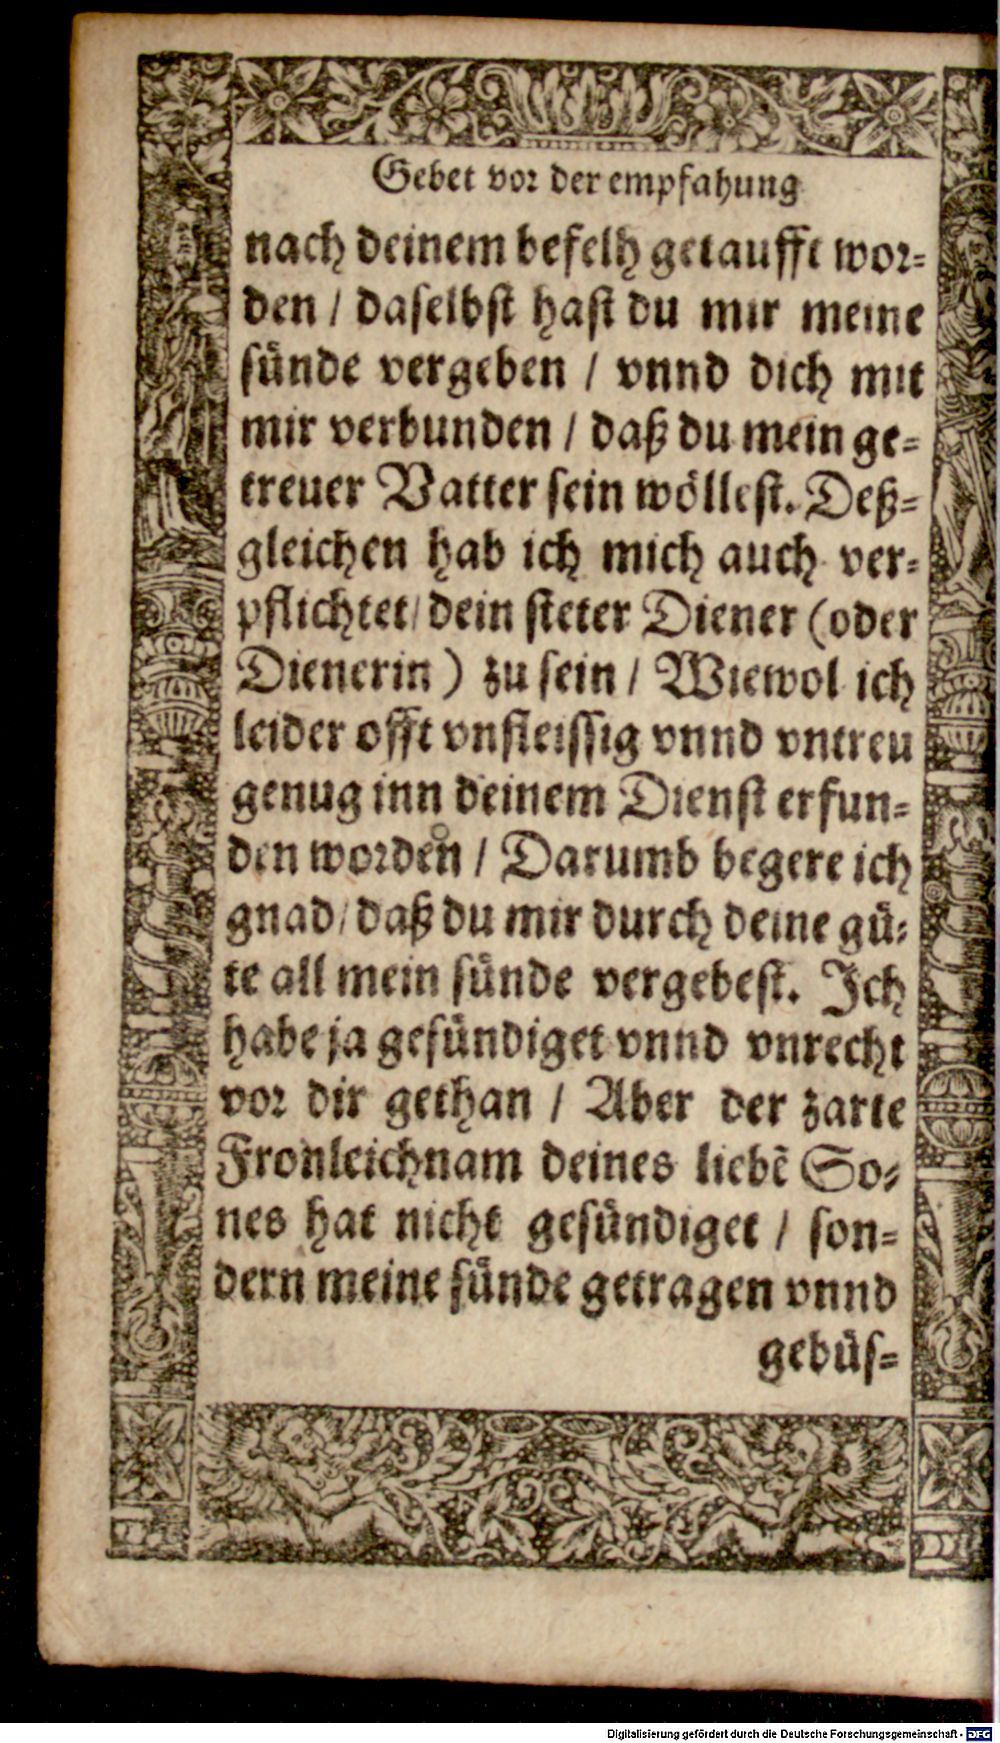 Gebet vor der empfahung
nach deinem befelh getaufft wor=
den / daselbst hast du mir meine
sünde vergeben / vnnd dich mit
mir verbunden / daß du mein ge=
treuer Vatter sein wöllest. Deß=
gleichen hab ich mich auch ver=
pflichtet / dein steter Diener (oder
Dienerin) zu sein / Wiewol ich
leider offt vnfleissig vnnd vntreu
genug inn deinem Dienst erfun=
den worden / Darumb begere ich
gnad / daß du mir durch deine gü=
te all mein sünde vergebest. Ich
habe ja gesündiget vnnd vnrecht
vor dir gethan / Aber der zarte
Fronleichnam deines liebẽ So=
nes hat nicht gesündiget / son=
dern meine sünde getragen vnnd
gebüs=
Digitalisierung gefördert durch die Deutsche Forschungsgemeinschaft - DFG